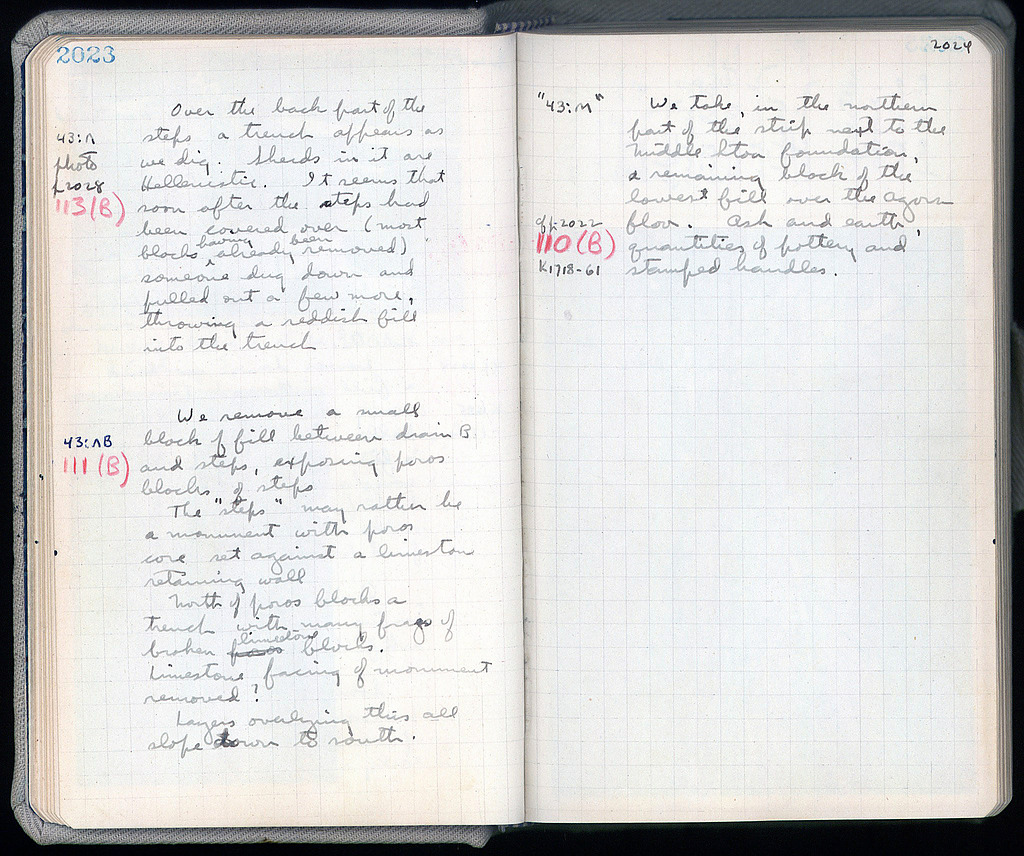 2023
Over the back part of the
43:Λ steps a trench appears as
photo we dig. Sherds in it are
p2028 Hellenistic. It seems that
113(B) soon after the steps had
been covered over (most
blocks having already been removed)
someone dug down and
pulled out a few more,
throwing a reddish fill
into the trench
We remove a small
43:ΛB block of fill between drain B
111(B) and steps, exposing poros
blocks of steps
The "steps" may rather be
a monument with poros
core set against a limeston
retaining wall
North of poros blocks a
trench with many frags of
broken poros limestone blocks.
Limestone facing of monument
removed?
Layers overlying this all
slope down to south.
2024
"43:M" We take, in the northern
part of the strip next to the
Middle Stoa foundation,
a remaining block of the
lowest fill over the agora
cf p2022 floor. Ash and earth,
110(B) quantities of pottery and
K1718-61 stamped handles.